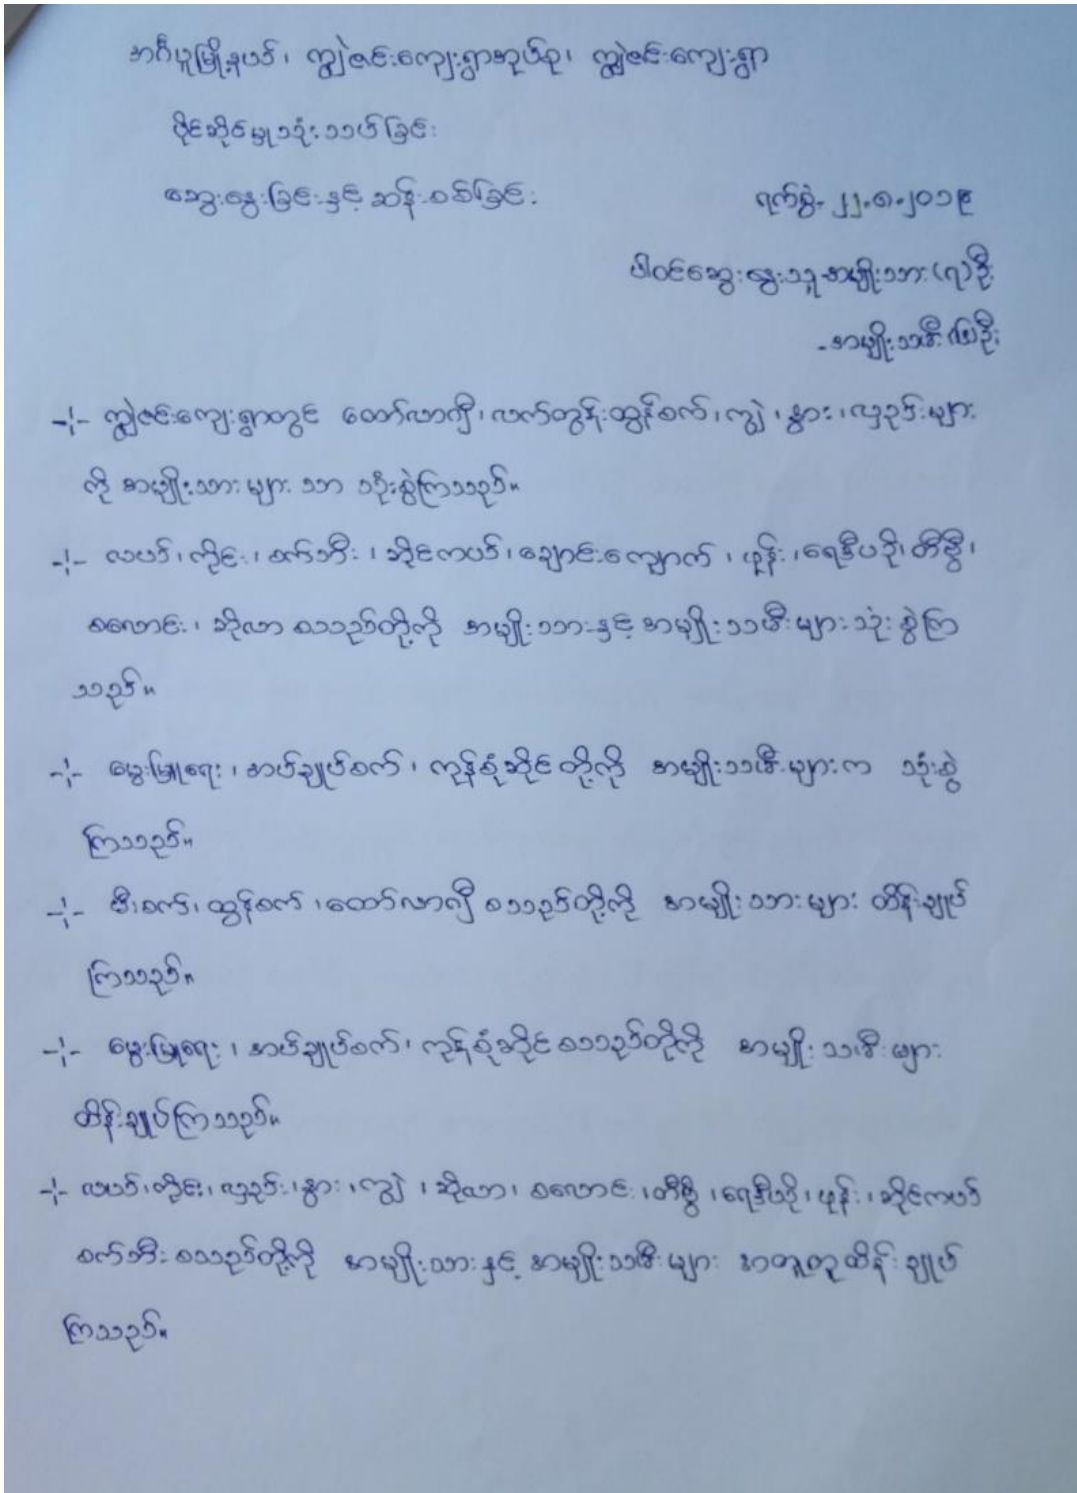 အင်္ဂပူမြို့နယ်၊ ကျွဲဇင်းကျေးရွာအုပ်စု၊ ကျွဲဇင်းကျေးရွာ
ပိုင်ဆိုင်မှုသုံးသပ်ခြင်း
ဆွေးနွေးခြင်းနှင့် ဆန်းစစ်ခြင်း
ရက်စွဲ- ၂၂.၈.၂၀၁၉
ပါဝင်ဆွေးနွေးသူ-အမျိုးသား (၇) ဦး
- အမျိုးသမီး ဦး
-:- ကျွဲဇင်းကျေးရွာတွင် ထော်လာဂျီ၊ လက်တွန်းထွန်စက်၊ ကျွဲ၊ နွား၊ လှည်းများ
ကို အမျိုးသားများ သာ သုံးစွဲကြသည်။
-:- လယ်၊ ကိုင်း၊ စက်ဘီး၊ ဆိုင်ကယ်၊ ချောင်းကျောက်၊ ဖုန်း၊ ရေဒီယို၊ တီဗွီ၊
စလောင်း၊ ဆိုလာ စသည်တို့ကို အမျိုးသားနှင့် အမျိုးသမီးများ သုံးစွဲကြ
သည်။
-:- မွေးမြူရေး၊ အပ်ချုပ်စက်၊ ကုန်စုံဆိုင်တို့ကို အမျိုးသမီးများက သုံးစွဲ
ကြသည်။
-:- မီးစက်၊ ထွန်စက်၊ ထော်လာဂျီ စသည်တို့ကို အမျိုးသားများ ထိန်းချုပ်
ကြသည်။
-:- မွေးမြူရေး၊ အပ်ချုပ်စက်၊ ကုန်စုံဆိုင် စသည်တို့ကို အမျိုးသမီးများ
ထိန်းချုပ်ကြသည်။
-:- လယ်၊ ကိုင်း၊ လှည်း၊ နွား၊ ကျွဲ၊ ဆိုလာ၊ စလောင်း၊ တီဗွီ၊ ရေဒီယို၊ ဖုန်း၊ ဆိုင်ကယ်
စက်ဘီး စသည်တို့ကို အမျိုးသားနှင့် အမျိုးသမီးများ အတူတူထိန်းချုပ်
ကြသည်။